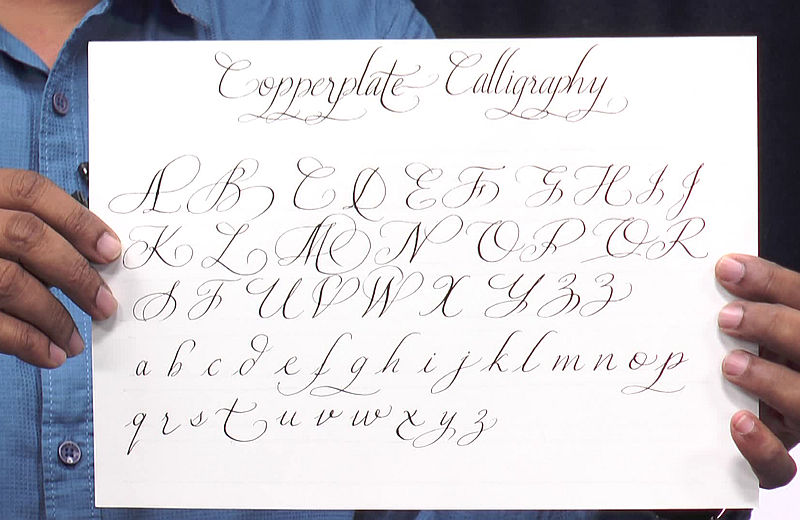 Copperplate Calligraphy
A B C D E F G H I J
K L M N O P Q R
S T U V W X Y Z Z
a b c d e f g h i j k l m n o p
q r s t u v w x y z